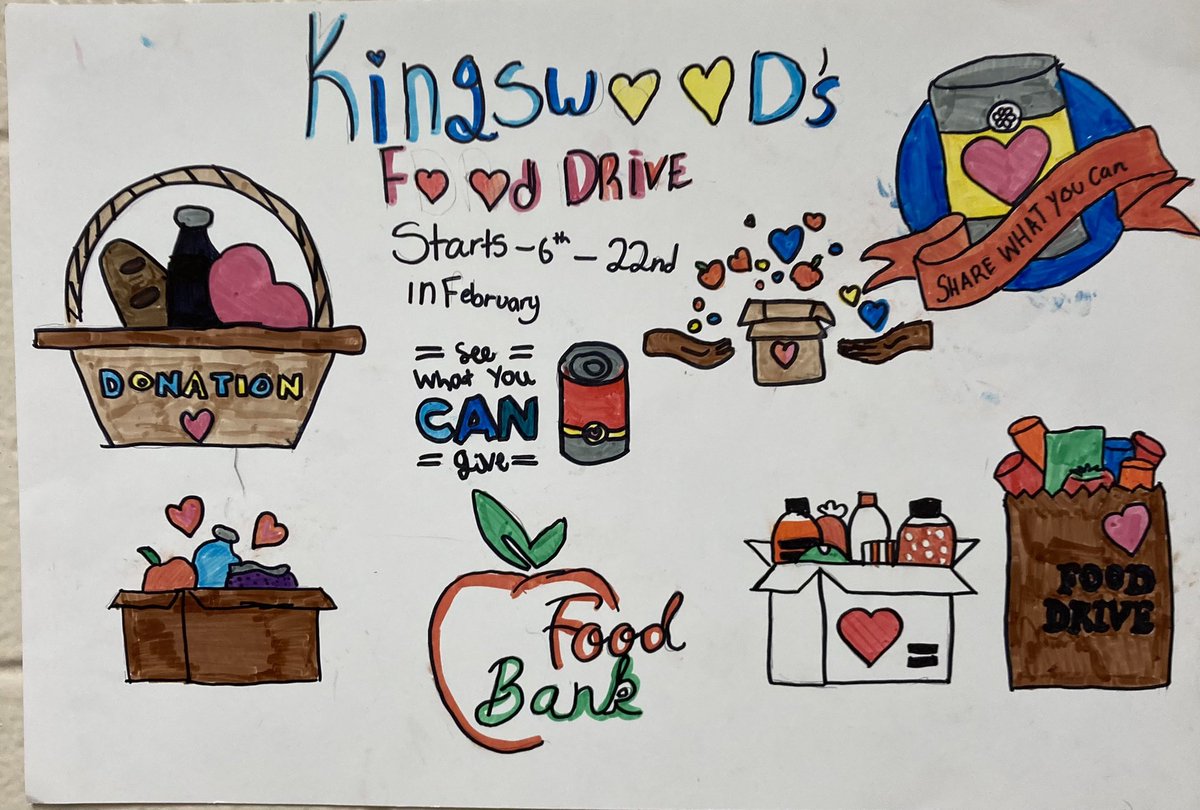 KingswooD's
Food DRIVE
Starts - 6th - 22nd
in February
SHARE WHAT YOU Can
= See =
What You
CAN
= give =
DONATION
Food
Bank
FOOD
DRIVE